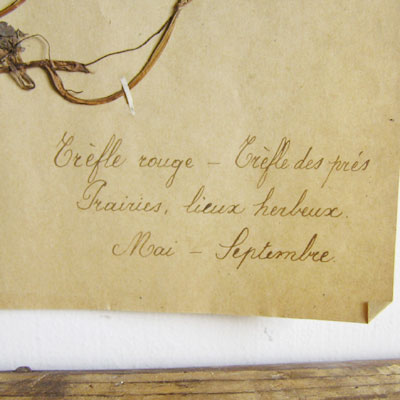 Trèfle rouge – Trèfle des prés
Prairies, lieux herbeux.
Mai – Septembre.